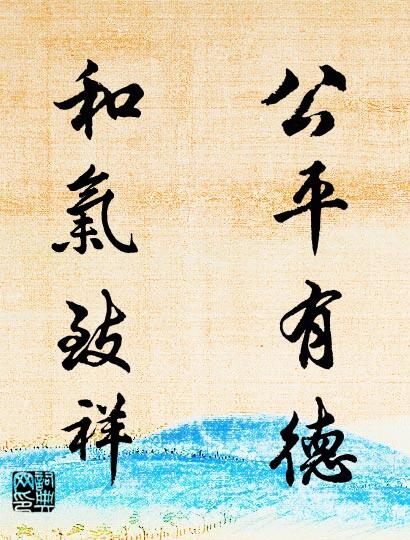 公平有德
和氣致祥
詞典网